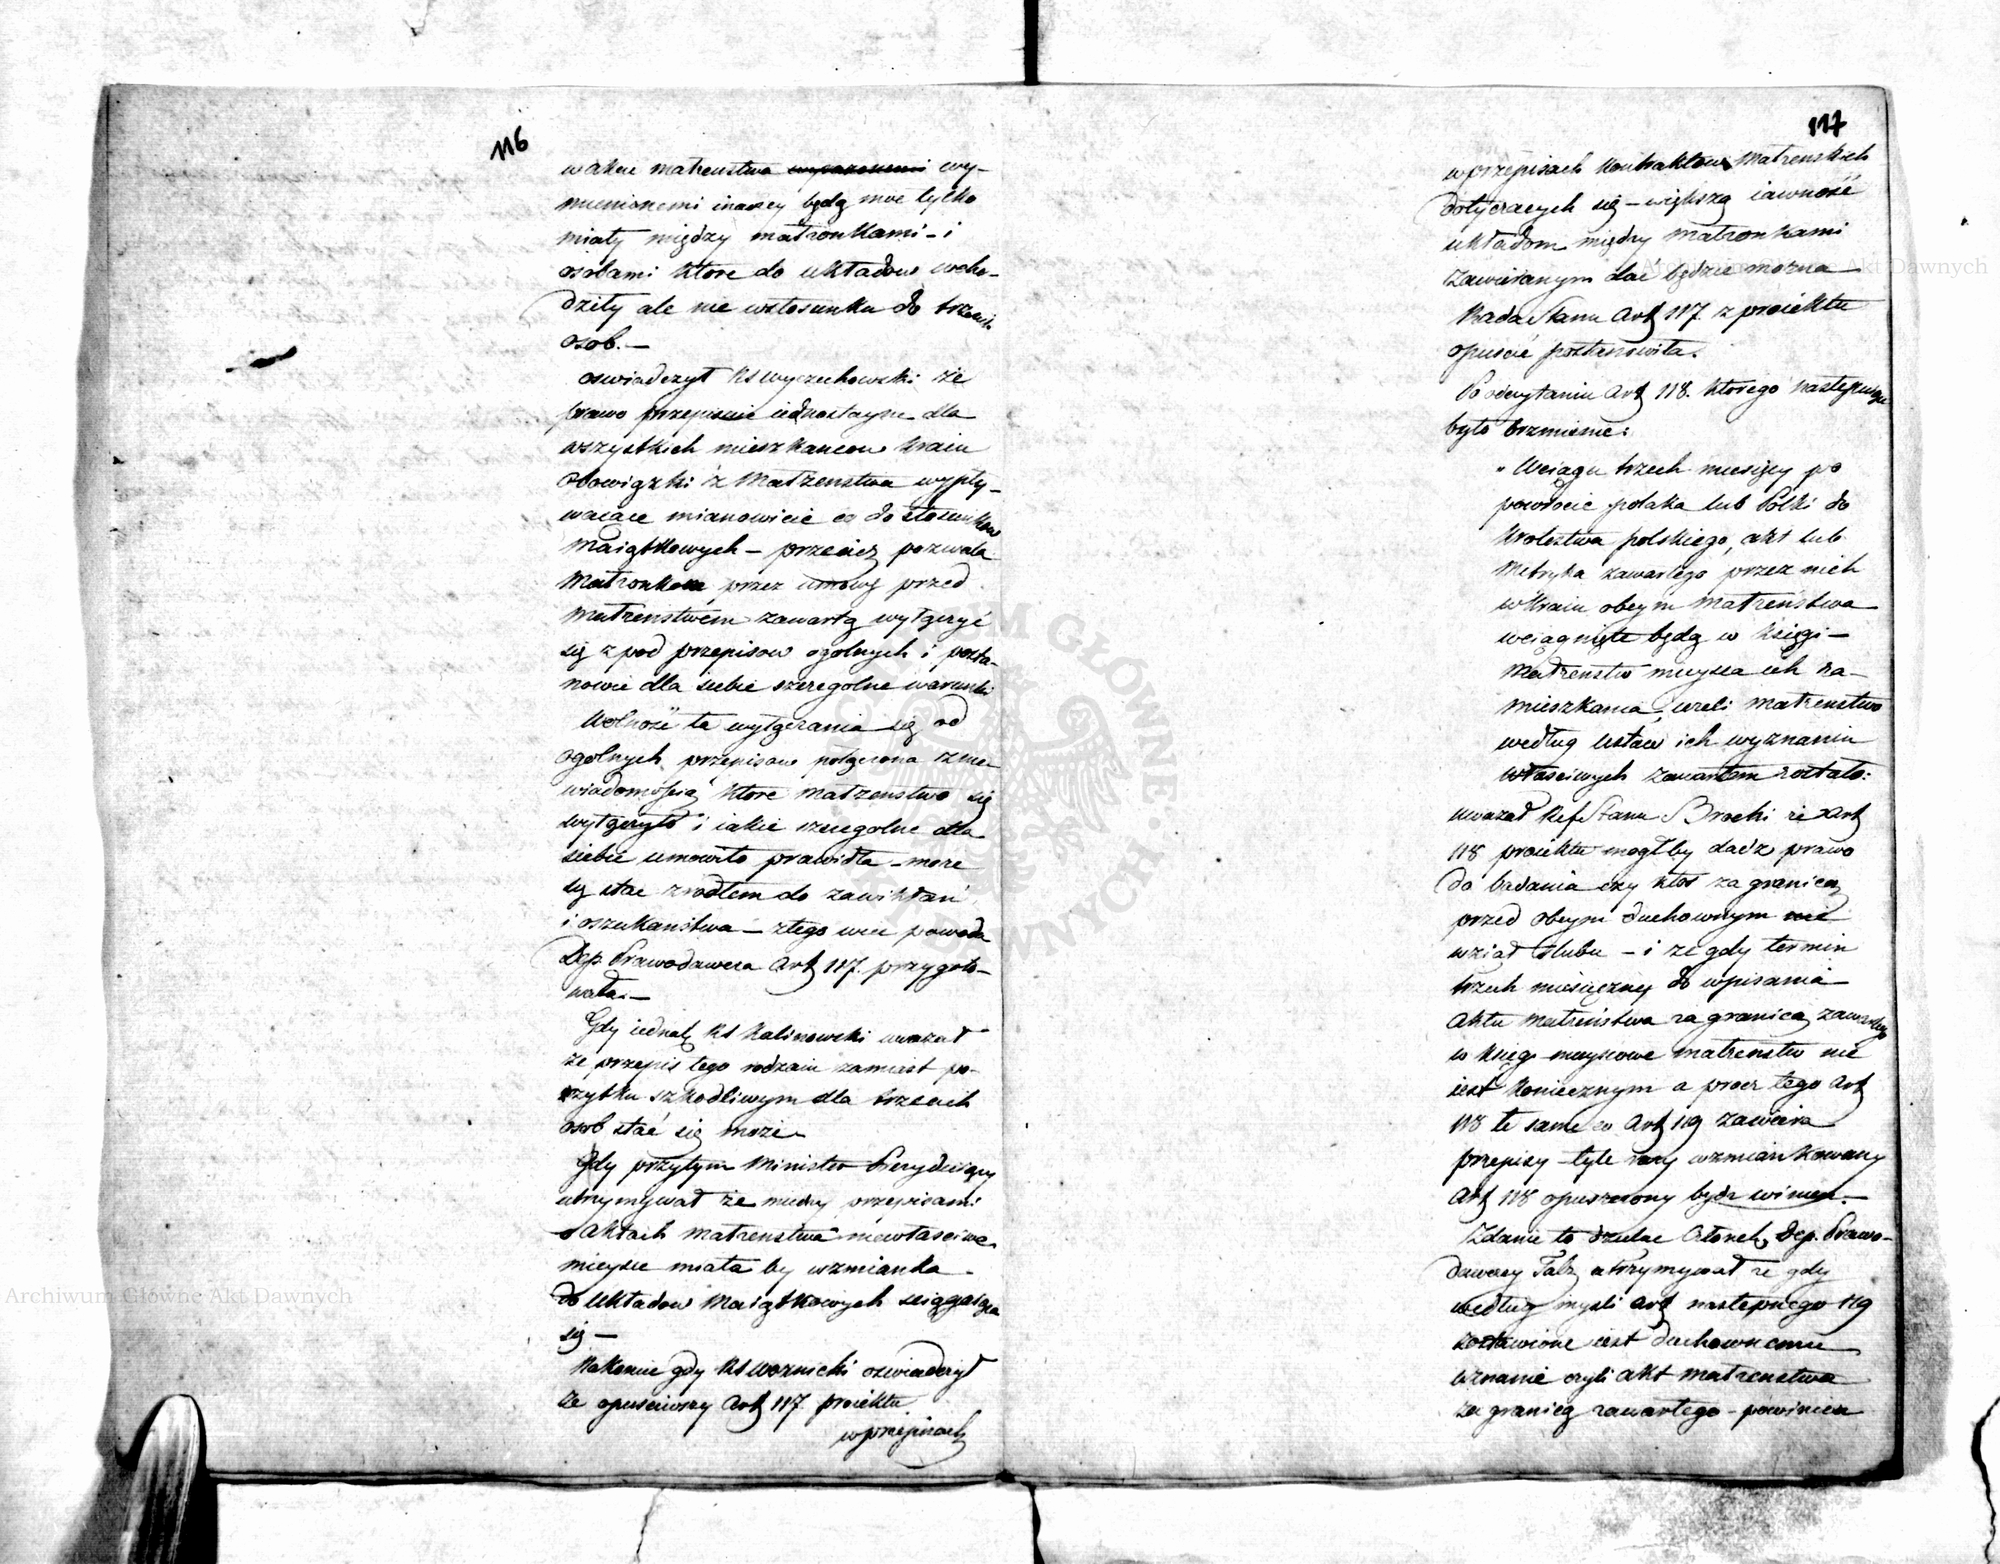 116
w akcie małżeństwa wyrażonemi wy-
mienionemi inaczey będą moc tylko
miały między małżonkami – i
osobami ktore do układow wcho-
dziły ale nie w stosunku do trzecich
osob. –
oswiadczył RS Wyczechowski że
prawo przepisuie iednostayne dla
wszystkich mieszkancow kraiu
obowiązki z Małżenstwa wypły-
waiące mianowicie co do stosunkow
Maiątkowych – przecież pozwala
Małżonkom przez umowę przed
Małżenstwem zawartą wyłączyć
się z pod przepisow ogolnych i posta-
nowic dla siebie szczegolne warunki
Wolność ta wyłączania się od
ogolnych przepisow połączona z nie
wiadomością ktore małżenstwo się
wyłączyło i iakie szczegolne dla
siebie umowiło prawidła – może
się stac zrodłem do zawikłań
i oszukaństwa – z tego więc powodu
Dep. Prawodawcza Art 117. przygoto-
wała. –
Gdy iednak RS Kalinowski uważał
że przepis tego rodzaiu zamiast po-
żytku szkodliwym dla trzecich
osob stać się może –
Gdy przytym Minister Prezyduiący
utrzymywał że między przepisami
o Aktach Małżenstwa niewłasciwe
mieysce miała by wzmianka
do układow Maiątkowych sciągaiąca
się –
Nakoniec gdy RS Woznicki oswiadczył
że opusciwszy Art 117 proiektu
w przepisach
117
w przepisach Kontraktow Małżenskich
dotyczących się – większą iawność
układom między małżonkami
zawieranym dać będzie można –
Rada Stanu Art 117. z proiektu
opuscić postanowiła.
Po odczytaniu Art 118. ktorego następuiące
było brzmienie:
„ Wciągu trzech miesięcy po
powrocie polaka lub Polki do
Krolestwa polskiego, akt lub
Metryka zawartego przez nich
w Kraiu obcym małżeństwa
wciągnięte będą w księgi –
Małżenstw mieysca ich za-
mieszkania, ieżeli małżenstwo
według ustaw ich wyznaniu
własciwych zawartem zostało:
uważał Ref Stanu Brocki że Art
118 proiektu mogłby dadz prawo
do badania czy ktos za granicą
przed obcym duchownym nie
wziął slubu – i ze gdy termin
trzech miesięczny do wpisania
Aktu Małżeństwa za granicą zawartego
w księgi mieyscowe małżenstw nie
iest koniecznym a procz tego Art
118 te same co Art 119 zawiera
przepisy – tyle razy wzmiankowany
Art 118 opuszczony bydz winien. –
Zdanie to dzieląc Członek Dep. Prawo-
dawczey Falz utrzymywał że gdy
według mysli Art następnego 119
zostawione iest duchownemu
uznanie czyli akt małżenstwa
za granicą zawartego – powinien